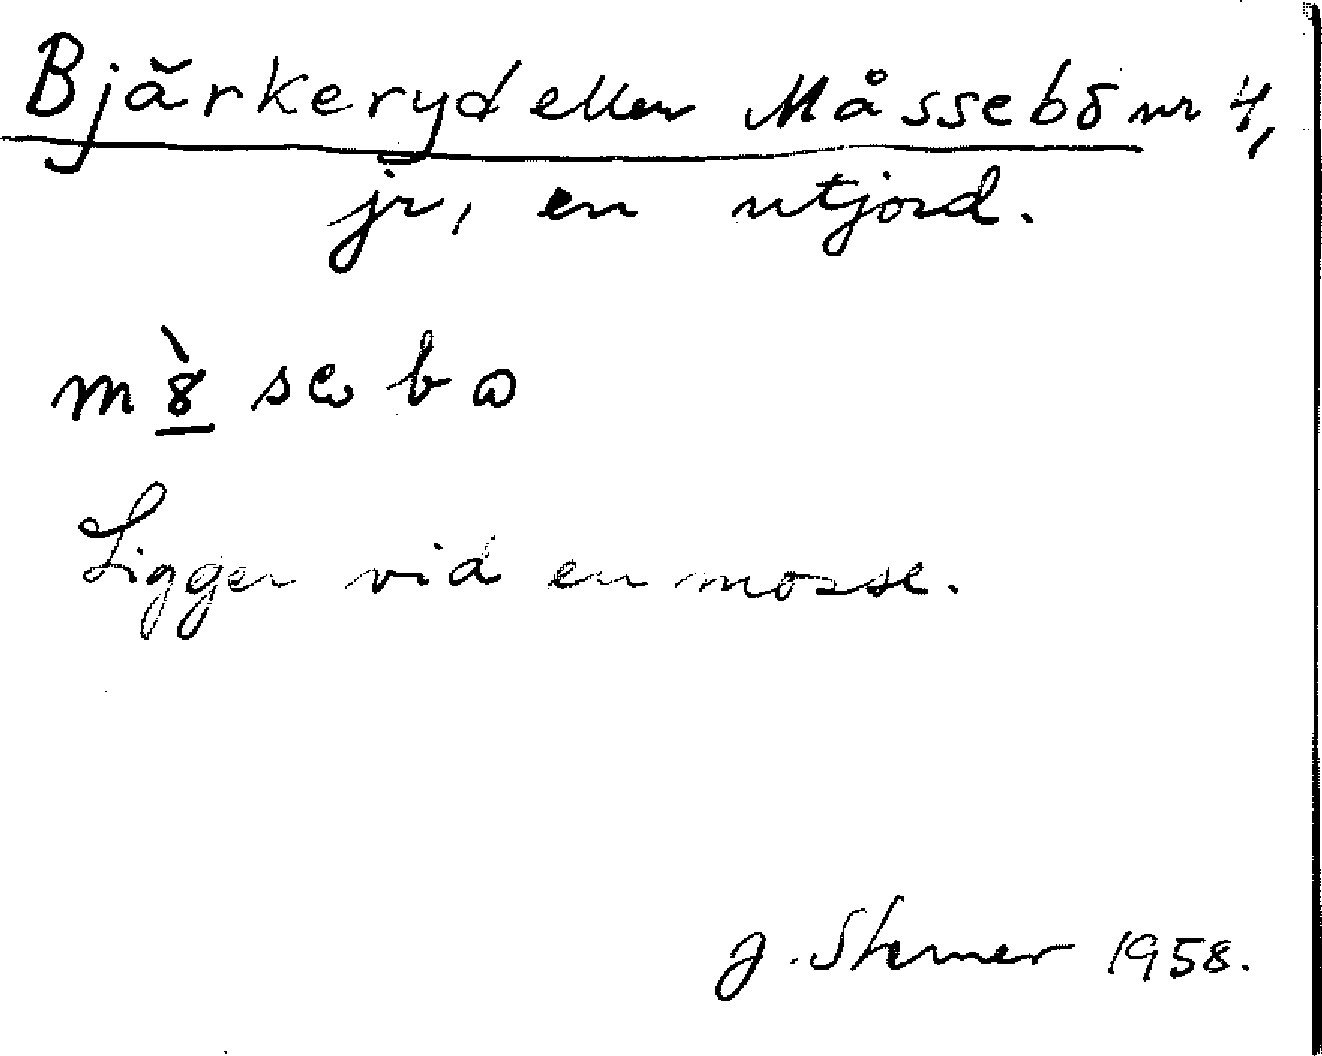 Bjärkeryd eller Måssebo nr 4,
jr, en utjord.
Ligger vid en mosse.
J. Sterner 1958.